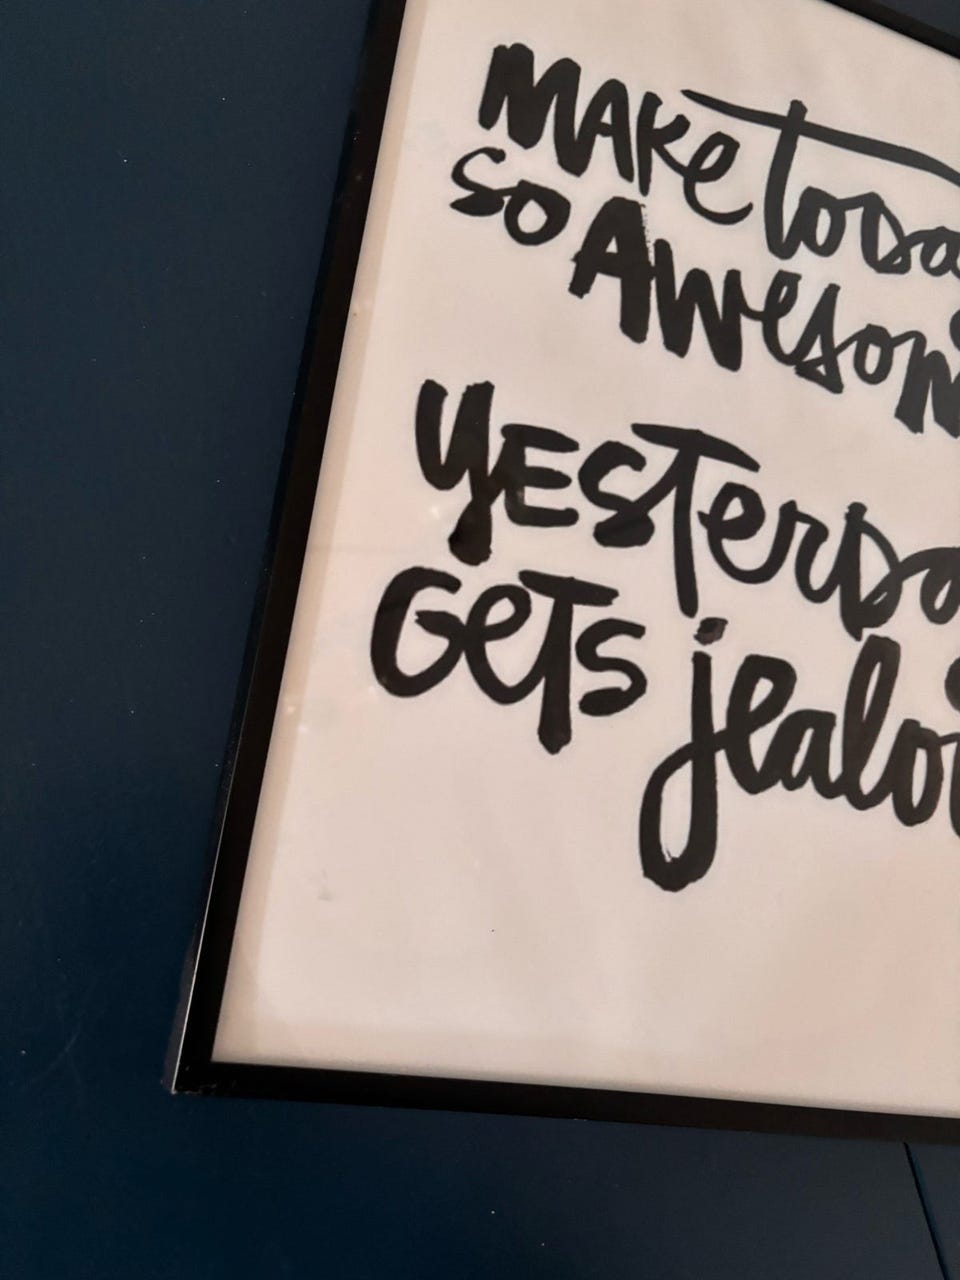 MAKE toda
so AWesom
YESTERDA
GeTs jealou